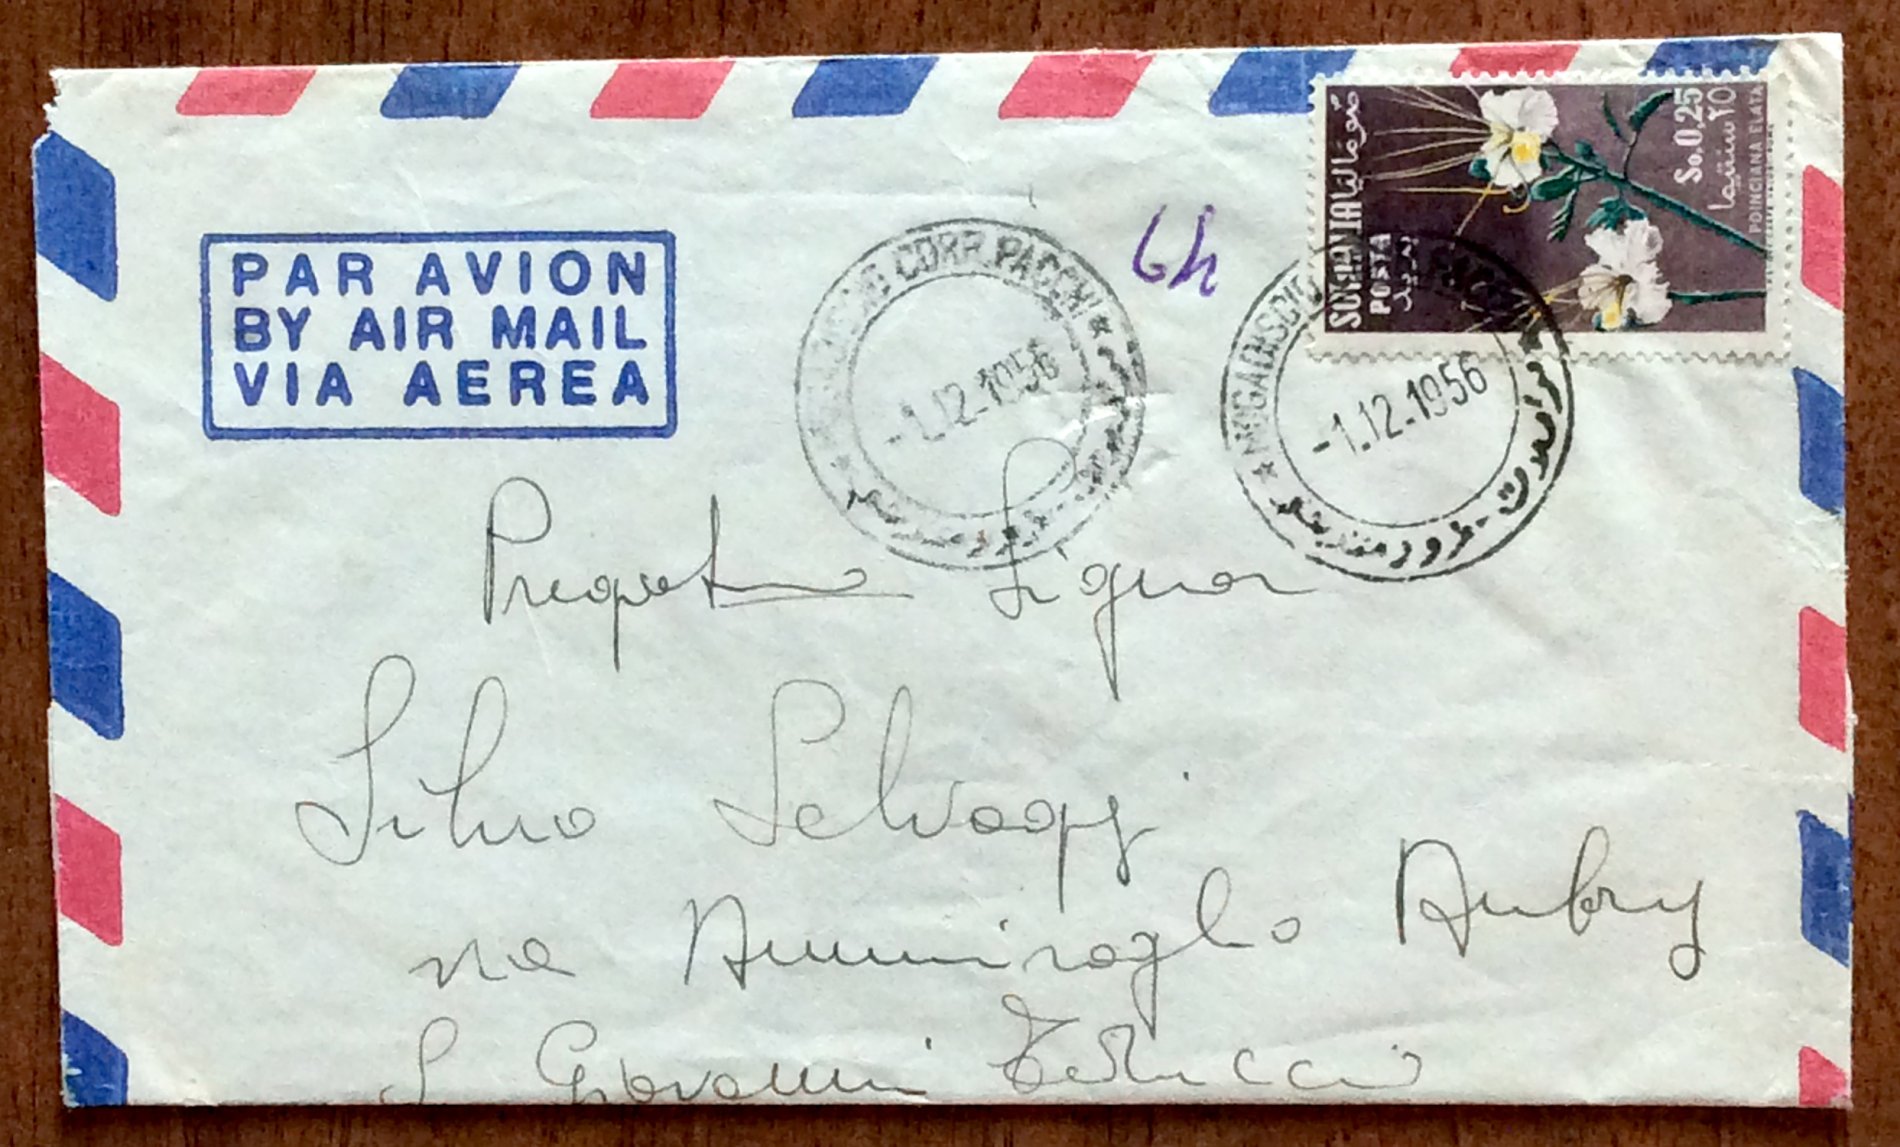 PAR AVION
BY AIR MAIL
VIA AEREA
MOGADISCIO CORR. PACCHI
-1.12-1956
صوماليا
SOMALIA
POSTA
بريد
So.0,25
٢٥ سنتيما
POINCIANA ELATA
MOGADISCIO
-1.12-1956
Pregiatmo Signor
Silvio Selvaggi
via Ammiraglio Aubry
S Giovanni Teduccio